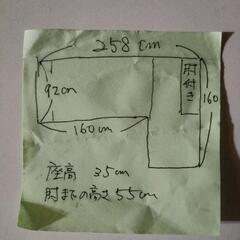 258 cm
92cm
肘付き
160
160cm
座高 35cm
肘までの高さ55cm